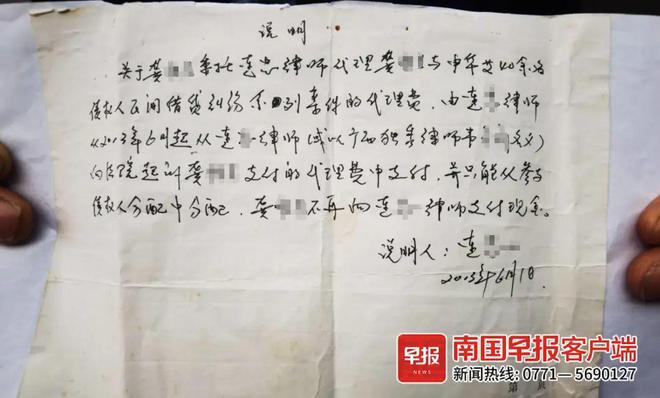 说明
关于龚 委托连忠律师代理龚 与申华艾40余名
债权人民间借贷纠纷系列案件的代理费,由连 律师
从2013年6月起,从连 律师(或以广西独秀律师事 名义)
向法院起诉龚 支付的代理费中支付,并只能从参与
债权人分配中分配,龚 不再向连 律师支付现金。
说明人:连
2013年6月1日
早报
NEWS
南国早报客户端
新闻热线:0771—5690127
第 页